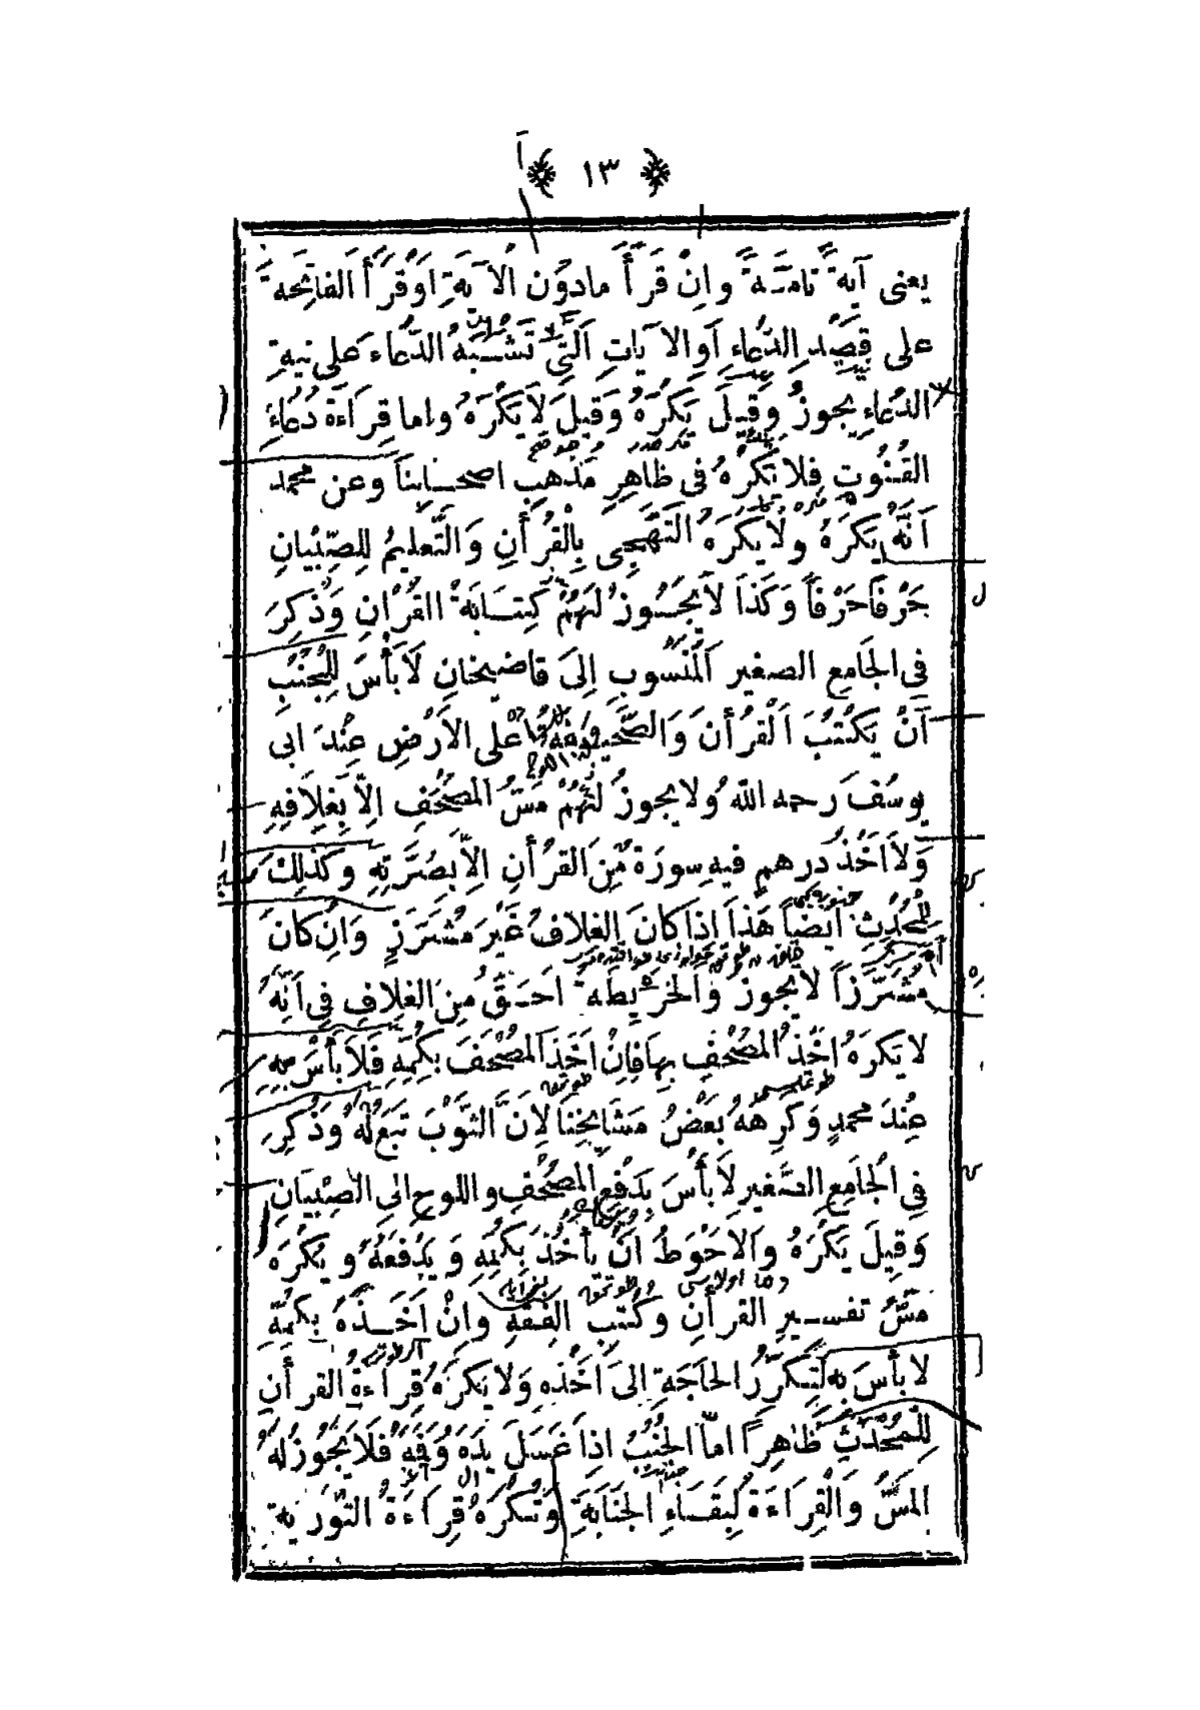 ١٣
يعنى آية تامّة وان قرأ مادون الآية او قرأ الفاتحة
على قصد الدعاء او الآيات التى تشبه الدعاء على نية
الدعاء يجوز وقيل يكره وقيل لا يكره واما قراءة دعاء
القنوت فلا تكره فى ظاهر مذهب اصحابنا وعن محمد
انه يكره ولا يكره التهجى بالقرأن والتعليم للصبيان
حرفا حرفا وكذا لا يجوز لهم كتابة القرأن وذكر
فى الجامع الصغير المنسوب الى قاضيخان لا بأس للجنب
ان يكتب القرأن والصحيفة على الارض عند ابى
يوسف رحمه الله ولا يجوز لهم مس المصحف الا بغلافه
ولا اخذ درهم فيه سورة من القرأن الا بصرته وكذلك
للمحدث ايضا هذا اذا كان الغلاف غير مشرز وان كان
مشرزا لا يجوز والخريطة احق من الغلاف فى انه
لا يكره اخذ المصحف بها فان اخذ المصحف بكمه فلا بأس به
عند محمد وكرهه بعض مشايخنا لان الثوب تبع له وذكر
فى الجامع الصغير لا بأس بدفع المصحف واللوح الى الصبيان
وقيل يكره والاحوط ان يأخذ بكمه ويدفعه ويكره
مس تفسير القرأن وكتب الفقه وان اخذه بكمه
لا بأس به لتكرر الحاجة الى اخذه ولا يكره قراءة القرأن
للمحدث ظاهرا اما الجنب اذا غسل يده وفمه فلا يجوز له
المس والقراءة لبقاء الجنابة وتكره قراءة التورية